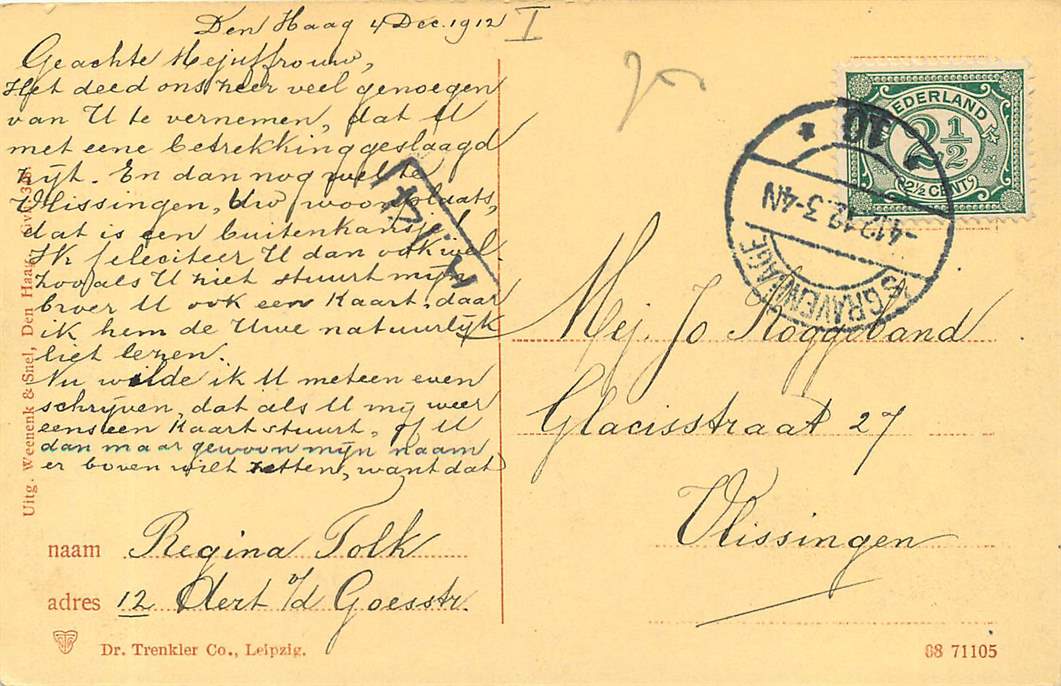 Den Haag 4 Dec. 1912
I
Geachte Mejuffrouw,
Het deed ons zeer veel genoegen
van U te vernemen, dat U
met eene betrekking geslaagd
zijt. En dan nog wel te
Vlissingen, Uw woonplaats,
dat is een buitenkans.
Ik feliciteer U dan ook wel.
Zooals U ziet stuurt mijn
broer U ook een Kaart, daar
ik hem de Uwe natuurlijk
liet lezen.
Nu wilde ik U meteen even
schrijven, dat als U mij weer
eens een Kaart stuurt, of U
dan maar gewoon mijn naam
er boven wilt zetten, want dat
naam Regina Tolk
adres 12 Aert v/d Goesstr.
Dr. Trenkler Co., Leipzig.
Uitg. Weenenk & Snel, Den Haag
NEDERLAND
2½
2½ CENT
10
-4.12.12.3-4N
'S GRAVENHAGE
Mej. Jo Hoggeband
Glacisstraat 27
Vlissingen
08 71105